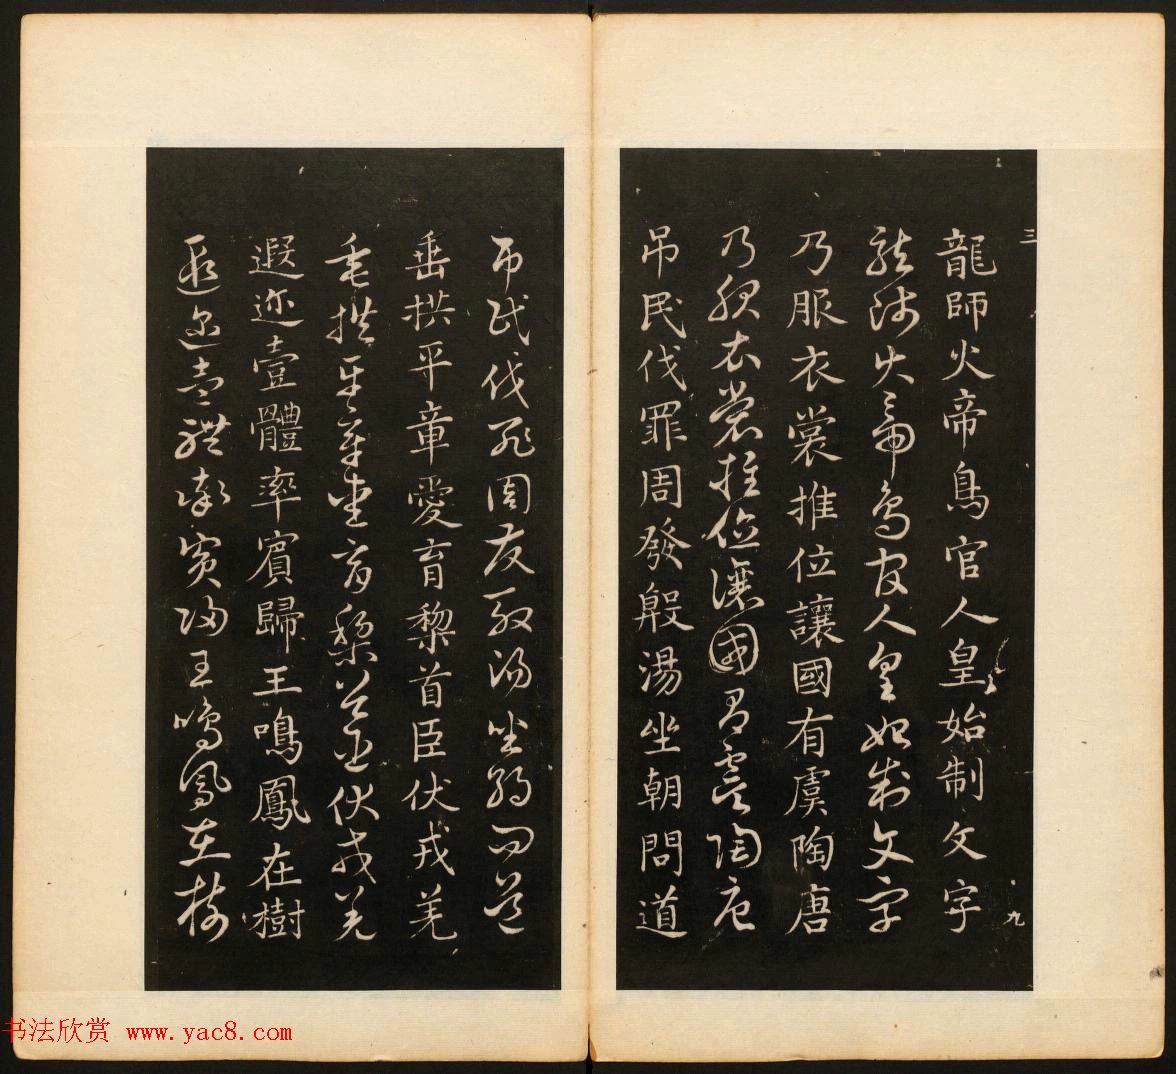 三
九
龍師火帝鳥官人皇始制文字
龍師火帝鳥官人皇始制文字
乃服衣裳推位讓國有虞陶唐
乃服衣裳推位讓國有虞陶唐
吊民伐罪周發殷湯坐朝問道
吊民伐罪周發殷湯坐朝問道
垂拱平章愛育黎首臣伏戎羌
垂拱平章愛育黎首臣伏戎羌
遐迩壹體率賓歸王鳴鳳在樹
遐迩壹體率賓歸王鳴鳳在樹
书法欣赏 www.yac8.com